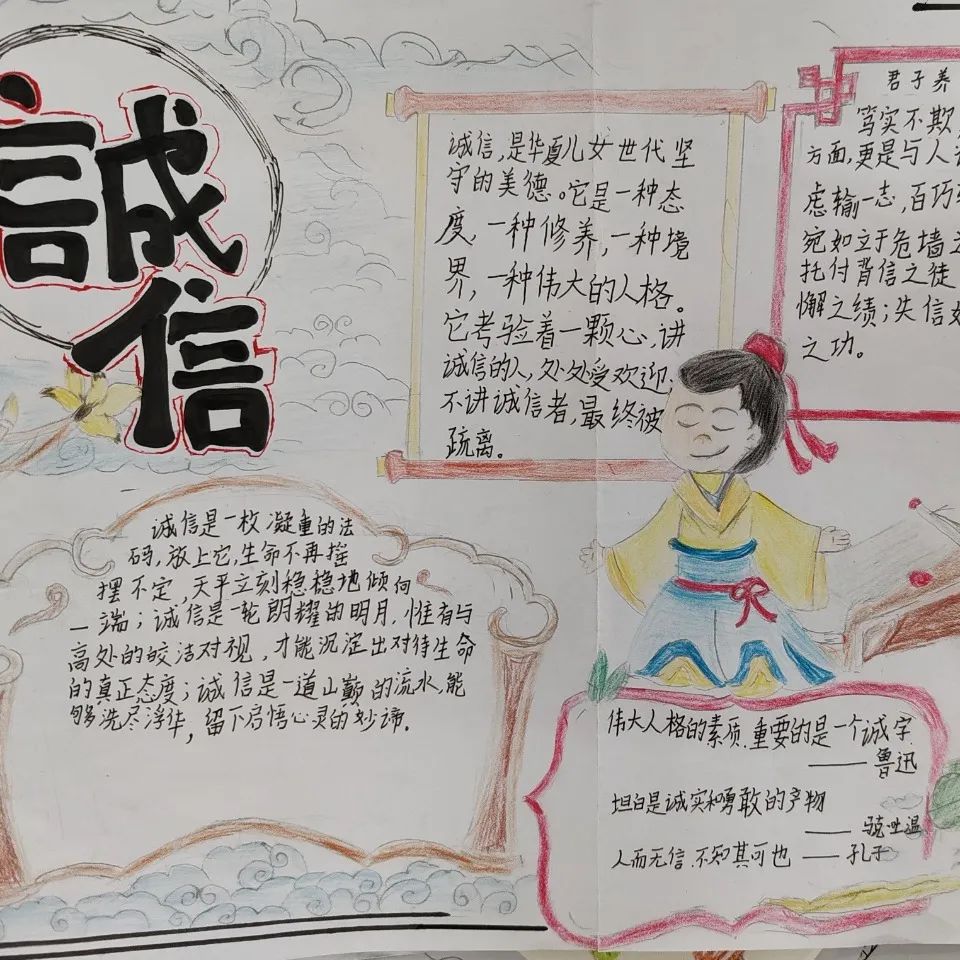 誠
信
诚信,是华夏儿女世代坚
守的美德。它是一种态
度,一种修养,一种境
界,一种伟大的人格。
它考验着一颗心,讲
诚信的人,处处受欢迎;
不讲诚信者,最终被
疏离。
君子养
笃实不欺,
方面,更是与人
虑输一志,百巧
宛如立于危墙之
托付背信之徒
懈之绩;失信如
之功。
诚信是一枚凝重的法
码,放上它,生命不再摇
摆不定,天平立刻稳稳地倾向
一端;诚信是一轮朗耀的明月,惟有与
高处的皎洁对视,才能沉淀出对待生命
的真正态度;诚信是一道山巅的流水,能
够洗尽浮华,留下启悟心灵的妙谛.
伟大人格的素质,重要的是一个诚字.
——鲁迅
坦白是诚实和勇敢的产物
——马克·吐温
人而无信,不知其可也——孔子